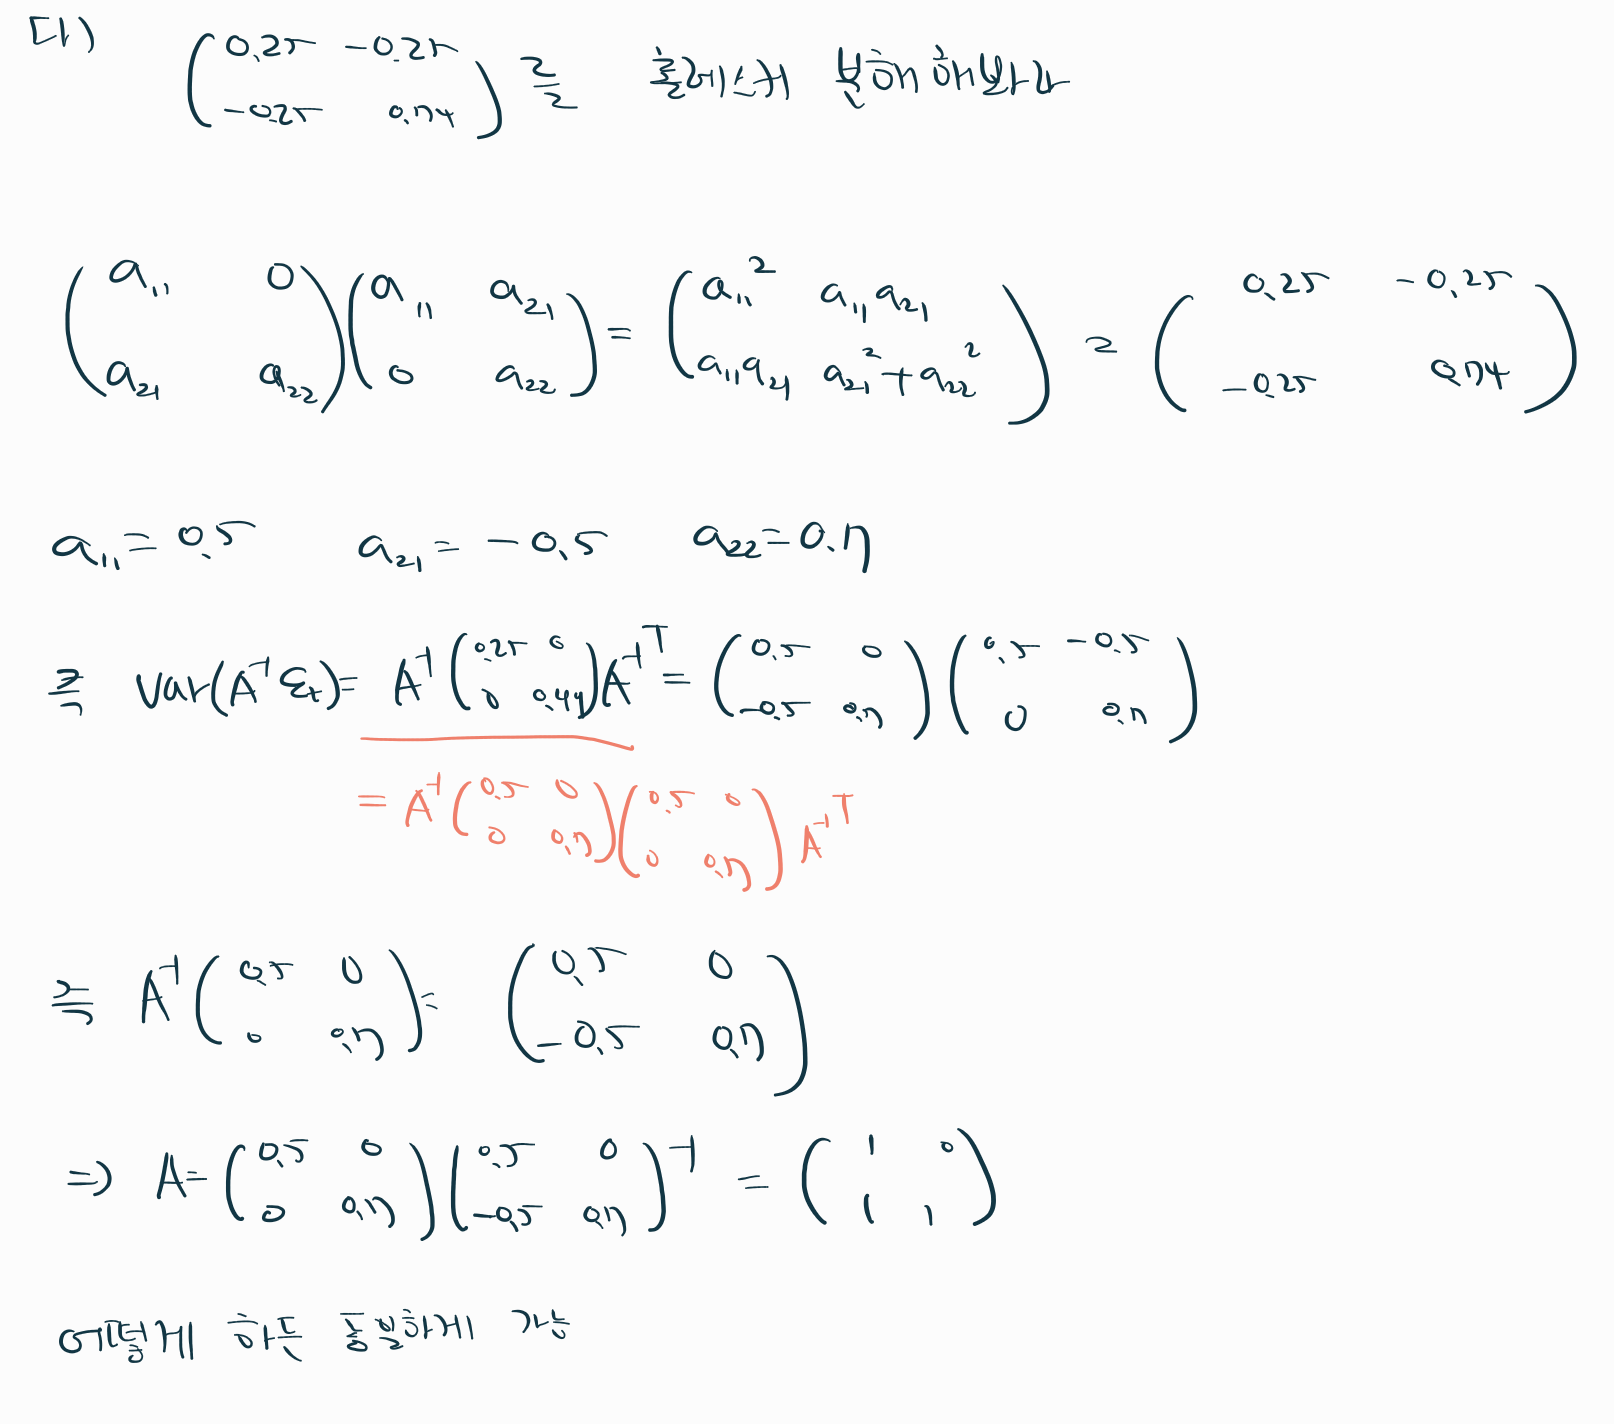 다) ( 0.25 -0.25 ; -0.25 0.74 ) 를 촐레스키 분해 해봐라
( a₁₁ 0 ; a₂₁ a₂₂ ) ( a₁₁ a₂₁ ; 0 a₂₂ ) = ( a₁₁² a₁₁a₂₁ ; a₁₁a₂₁ a₂₁²+a₂₂² ) = ( 0.25 -0.25 ; -0.25 0.74 )
a₁₁ = 0.5 a₂₁ = -0.5 a₂₂ = 0.7
즉 Var(A⁻¹ε_t) = A⁻¹ ( 0.25 0 ; 0 0.49 ) A⁻¹ᵀ = ( 0.5 0 ; -0.5 0.7 ) ( 0.5 -0.5 ; 0 0.7 )
= A⁻¹ ( 0.5 0 ; 0 0.7 ) ( 0.5 0 ; 0 0.7 ) A⁻¹ᵀ
즉 A⁻¹ ( 0.5 0 ; 0 0.7 ) = ( 0.5 0 ; -0.5 0.7 )
⇒ A = ( 0.5 0 ; 0 0.7 ) ( 0.5 0 ; -0.5 0.7 )⁻¹ = ( 1 0 ; 1 1 )
어떻게 하든 동일하게 가능